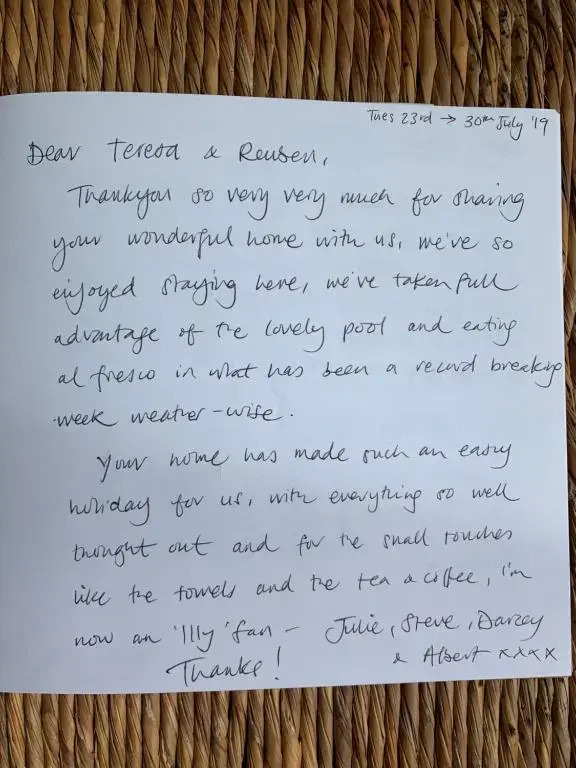 Tues 23rd → 30th July '19
Dear Teresa & Reuben,
Thankyou so very very much for sharing
your wonderful home with us, we've so
enjoyed staying here, we've taken full
advantage of the lovely pool and eating
al fresco in what has been a record breaking
week weather-wise.
Your home has made such an easy
holiday for us, with everything so well
thought out and for the small touches
like the towels and the tea & coffee, I'm
now an 'Illy' fan – Julie, Steve, Darcey
Thanks! & Albert xxxx